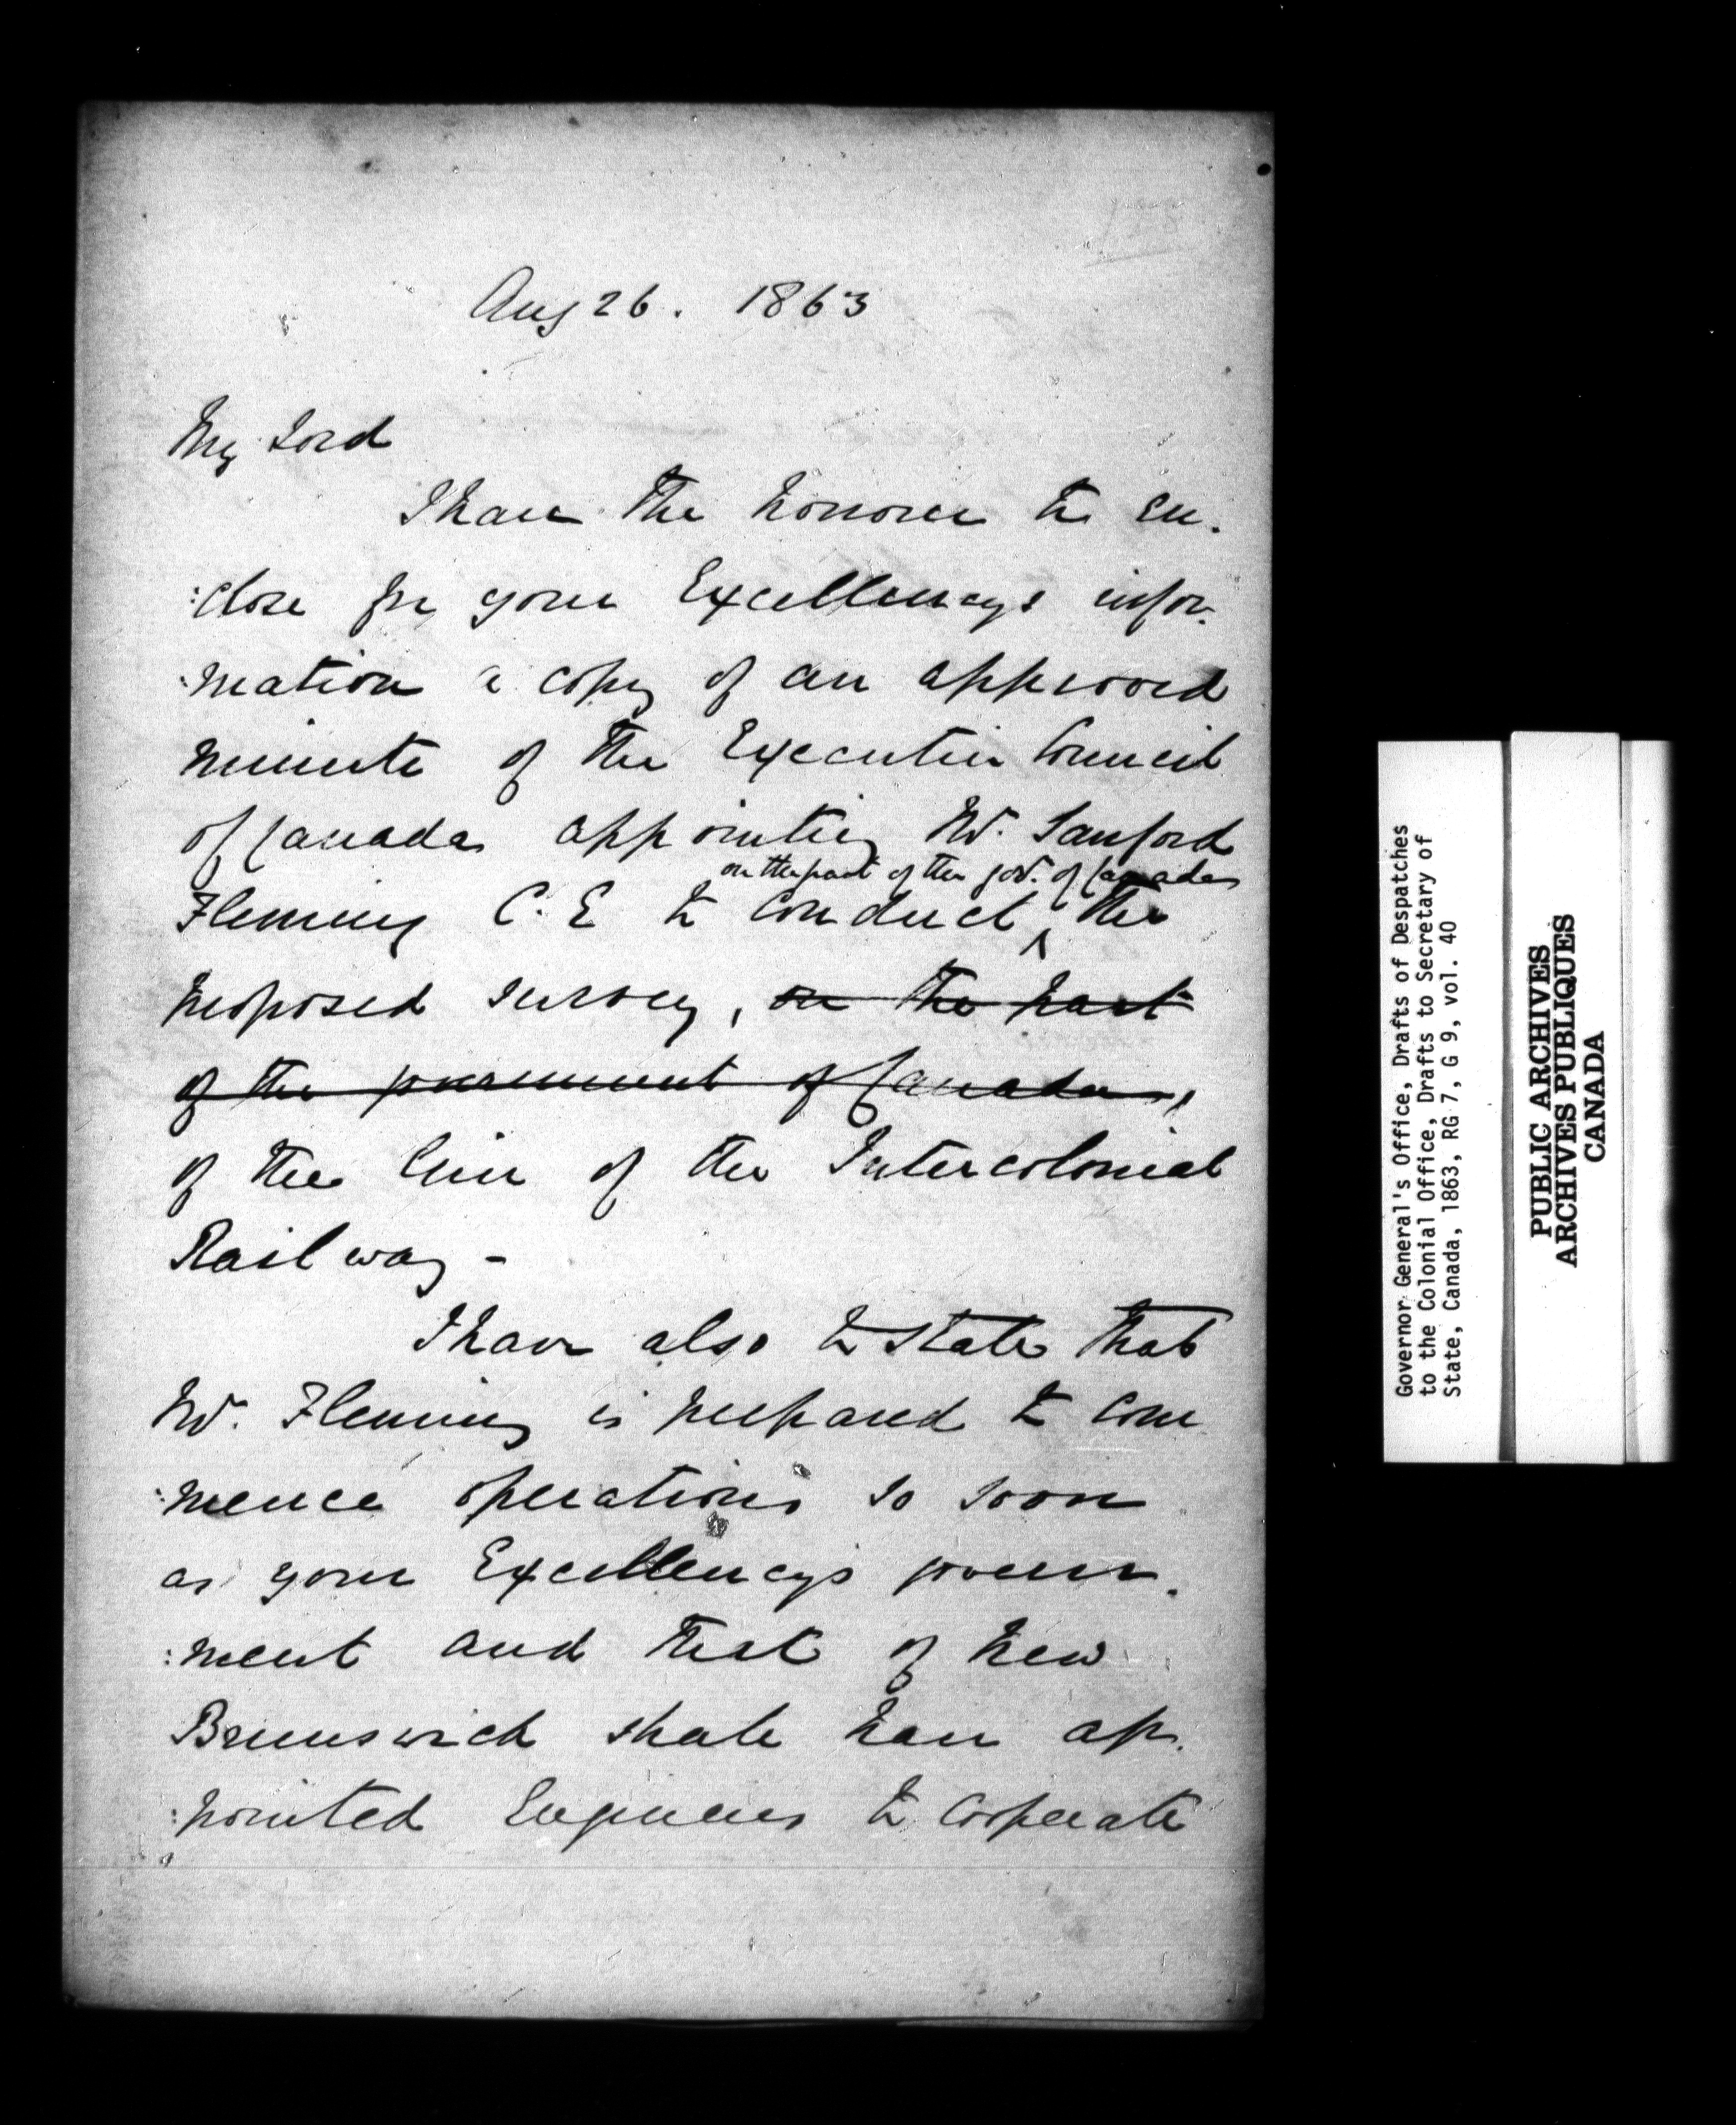 Aug 26. 1863
My Lord
I have the honour to en-
:close for your Excellency's infor-
:mation a copy of an approved
minute of the Executive Council
of Canada appointing Mr. Sanford
on the part of the Govt. of Canada
Fleming C. E to conduct ^ the
proposed survey, on the part
of the government of Canada,
of the line of the Intercolonial
Railway -
I have also to state that
Mr. Fleming is prepared to com
:mence operations so soon
as your Excellency's govern-
:ment and that of New
Brunswick shall have ap-
:pointed Engineers to cooperate
Governor General's Office, Drafts of Despatches
to the Colonial Office, Drafts to Secretary of
State, Canada, 1863, RG 7, G 9, vol. 40
PUBLIC ARCHIVES
ARCHIVES PUBLIQUES
CANADA